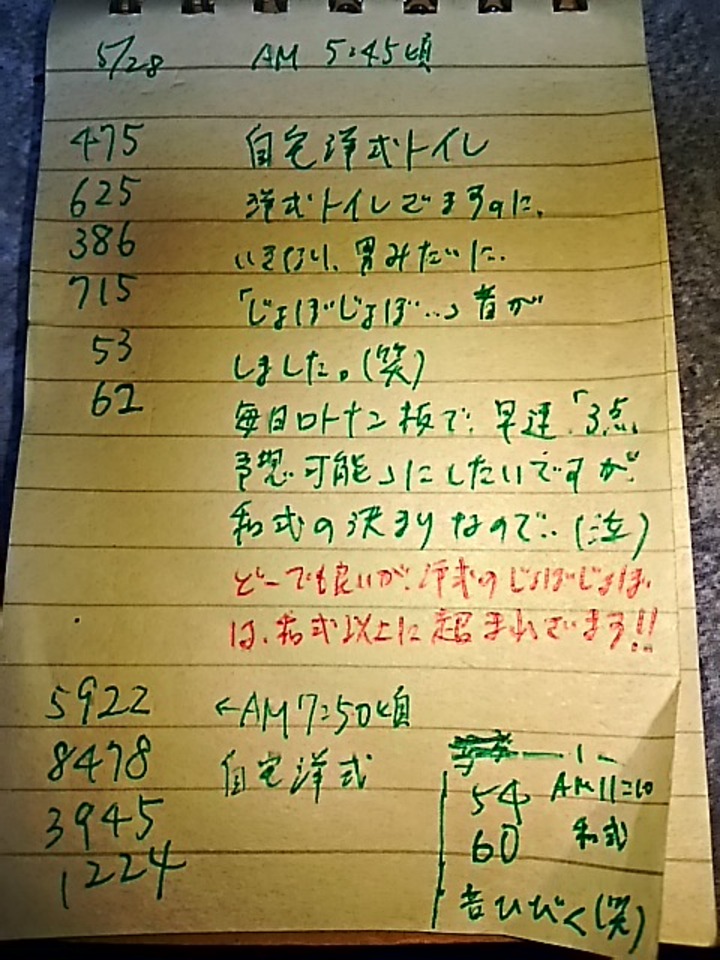 5/28 AM 5:45頃
475 自宅洋式トイレ
625 洋式トイレでますのに、
386 いきなり、男みたいに、
715 「じょぼじょぼ…」音が
53 しました。(笑)
62 毎日ロトナン板で、早速「3点
予想可能」にしたいですが、
和式の決まりなので…(泣)
どーでも良いが、洋式のじょぼじょぼ
は、和式以上に超まれでます!!
5922 ←AM7:50頃
8478 自宅洋式
3945
1224
54 AM11:10
60 和式
音ひびく(笑)